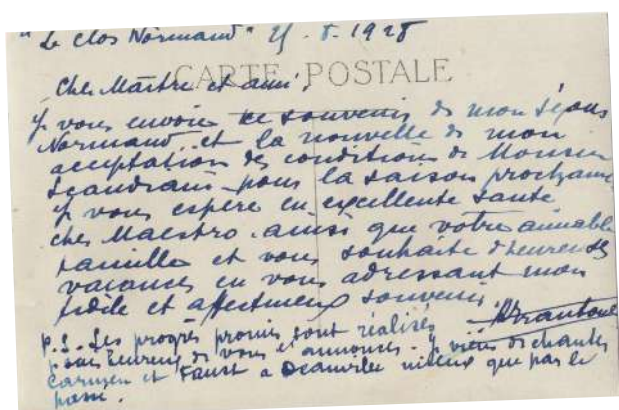 "Le Clos Normand" 25. 8. 1928
CARTE POSTALE
Cher Maître et ami,
Je vous envoie ce souvenir de mon séjour
Normand et la nouvelle de mon
acceptation des conditions de Monsieur
pour la saison prochaine
Je vous espère en excellente santé
cher Maestro ainsi que votre aimable
famille et vous souhaite d'heureuses
vacances en vous adressant mon
fidèle et affectueux souvenir.
P.S. Les progrès promis sont réalisés
heureux de vous l'annoncer. Je viens de chanter
Carmen et Faust a Deauville mieux que par le
passé.